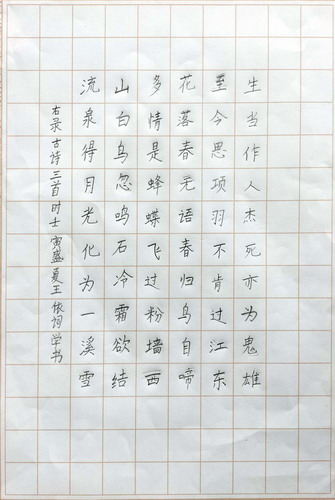 生当作人杰死亦为鬼雄
至今思项羽不肯过江东
花落春无语春归鸟自啼
多情是蜂蝶飞过粉墙西
山白鸟忽鸣石冷霜欲结
流泉得月光化为一溪雪
右录古诗三首时壬寅盛夏王依学书